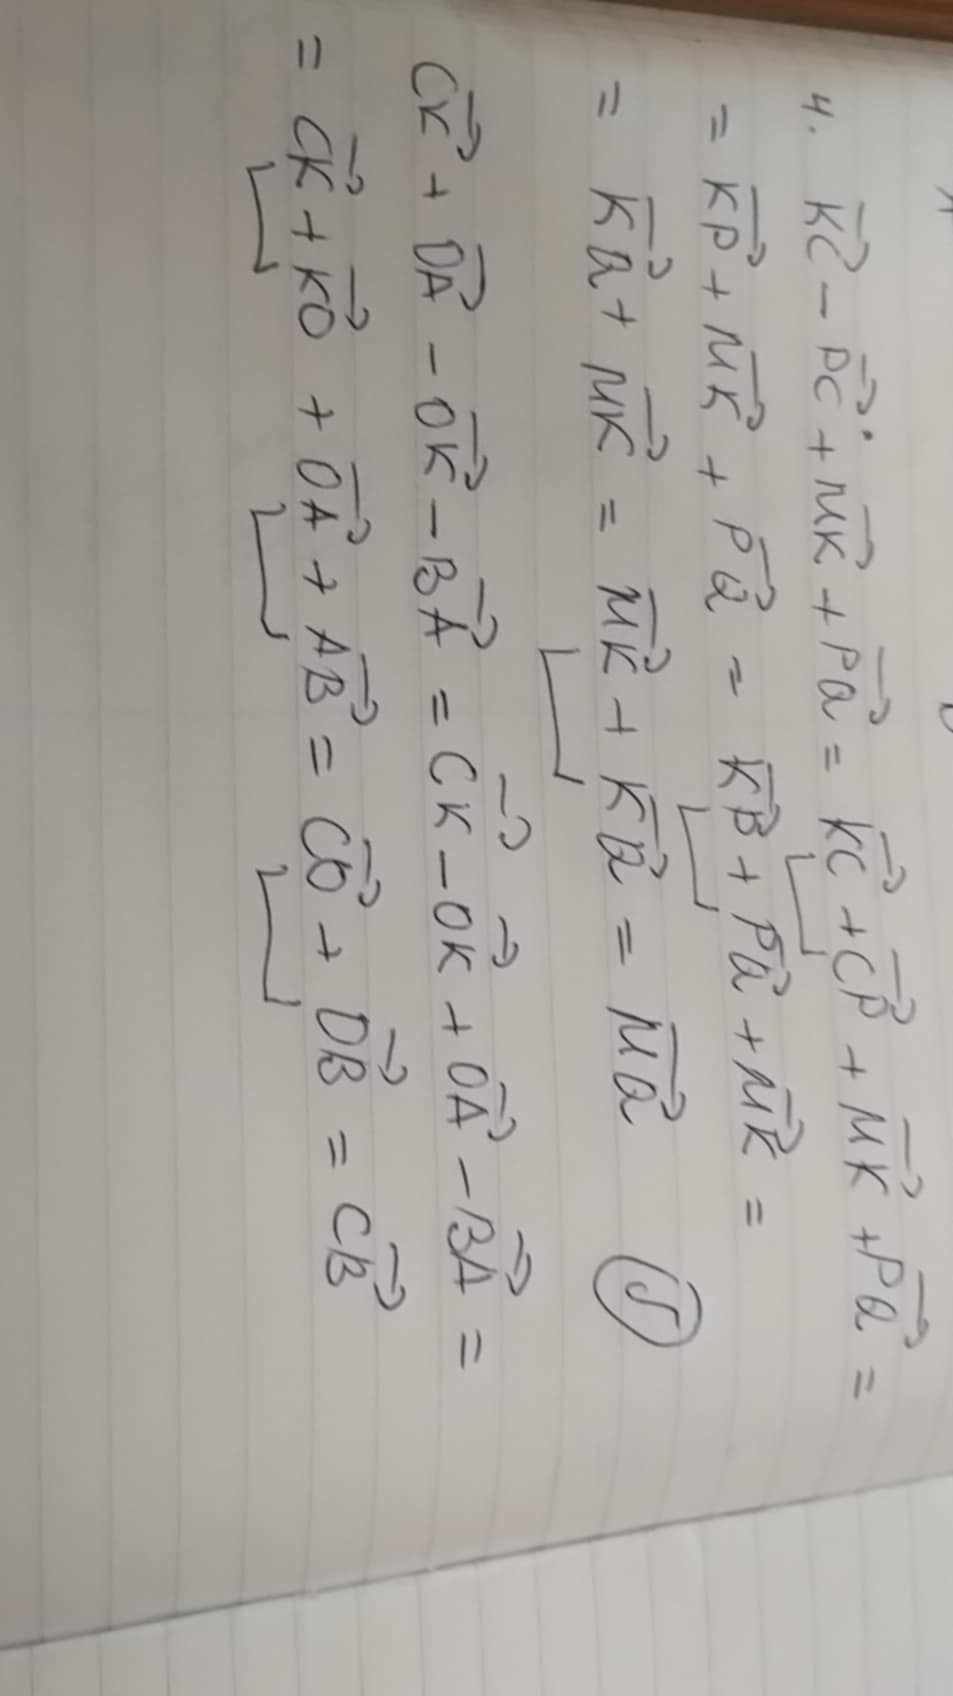 4. K⃗C⃗ - P⃗C⃗ + M⃗K⃗ + P⃗a⃗ = K⃗C⃗ + C⃗P⃗ + M⃗K⃗ + P⃗a⃗ =
= K⃗P⃗ + M⃗K⃗ + P⃗a⃗ = K⃗P⃗ + P⃗a⃗ + M⃗K⃗ =
= K⃗a⃗ + M⃗K⃗ = M⃗K⃗ + K⃗a⃗ = M⃗a⃗
C⃗K⃗ + D⃗A⃗ - O⃗K⃗ - B⃗A⃗ = C⃗K⃗ - O⃗K⃗ + O⃗A⃗ - B⃗A⃗ =
= C⃗K⃗ + K⃗O⃗ + O⃗A⃗ + A⃗B⃗ = C⃗O⃗ + O⃗B⃗ = C⃗B⃗